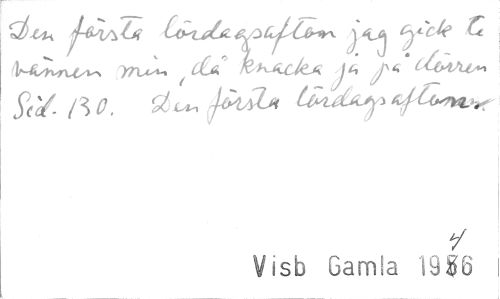 Den första lördagsafton jag gick te
vännen min, då knacka ja på dörren
Sid. 130. Den första lördagsafton
4
Visb Gamla 1986